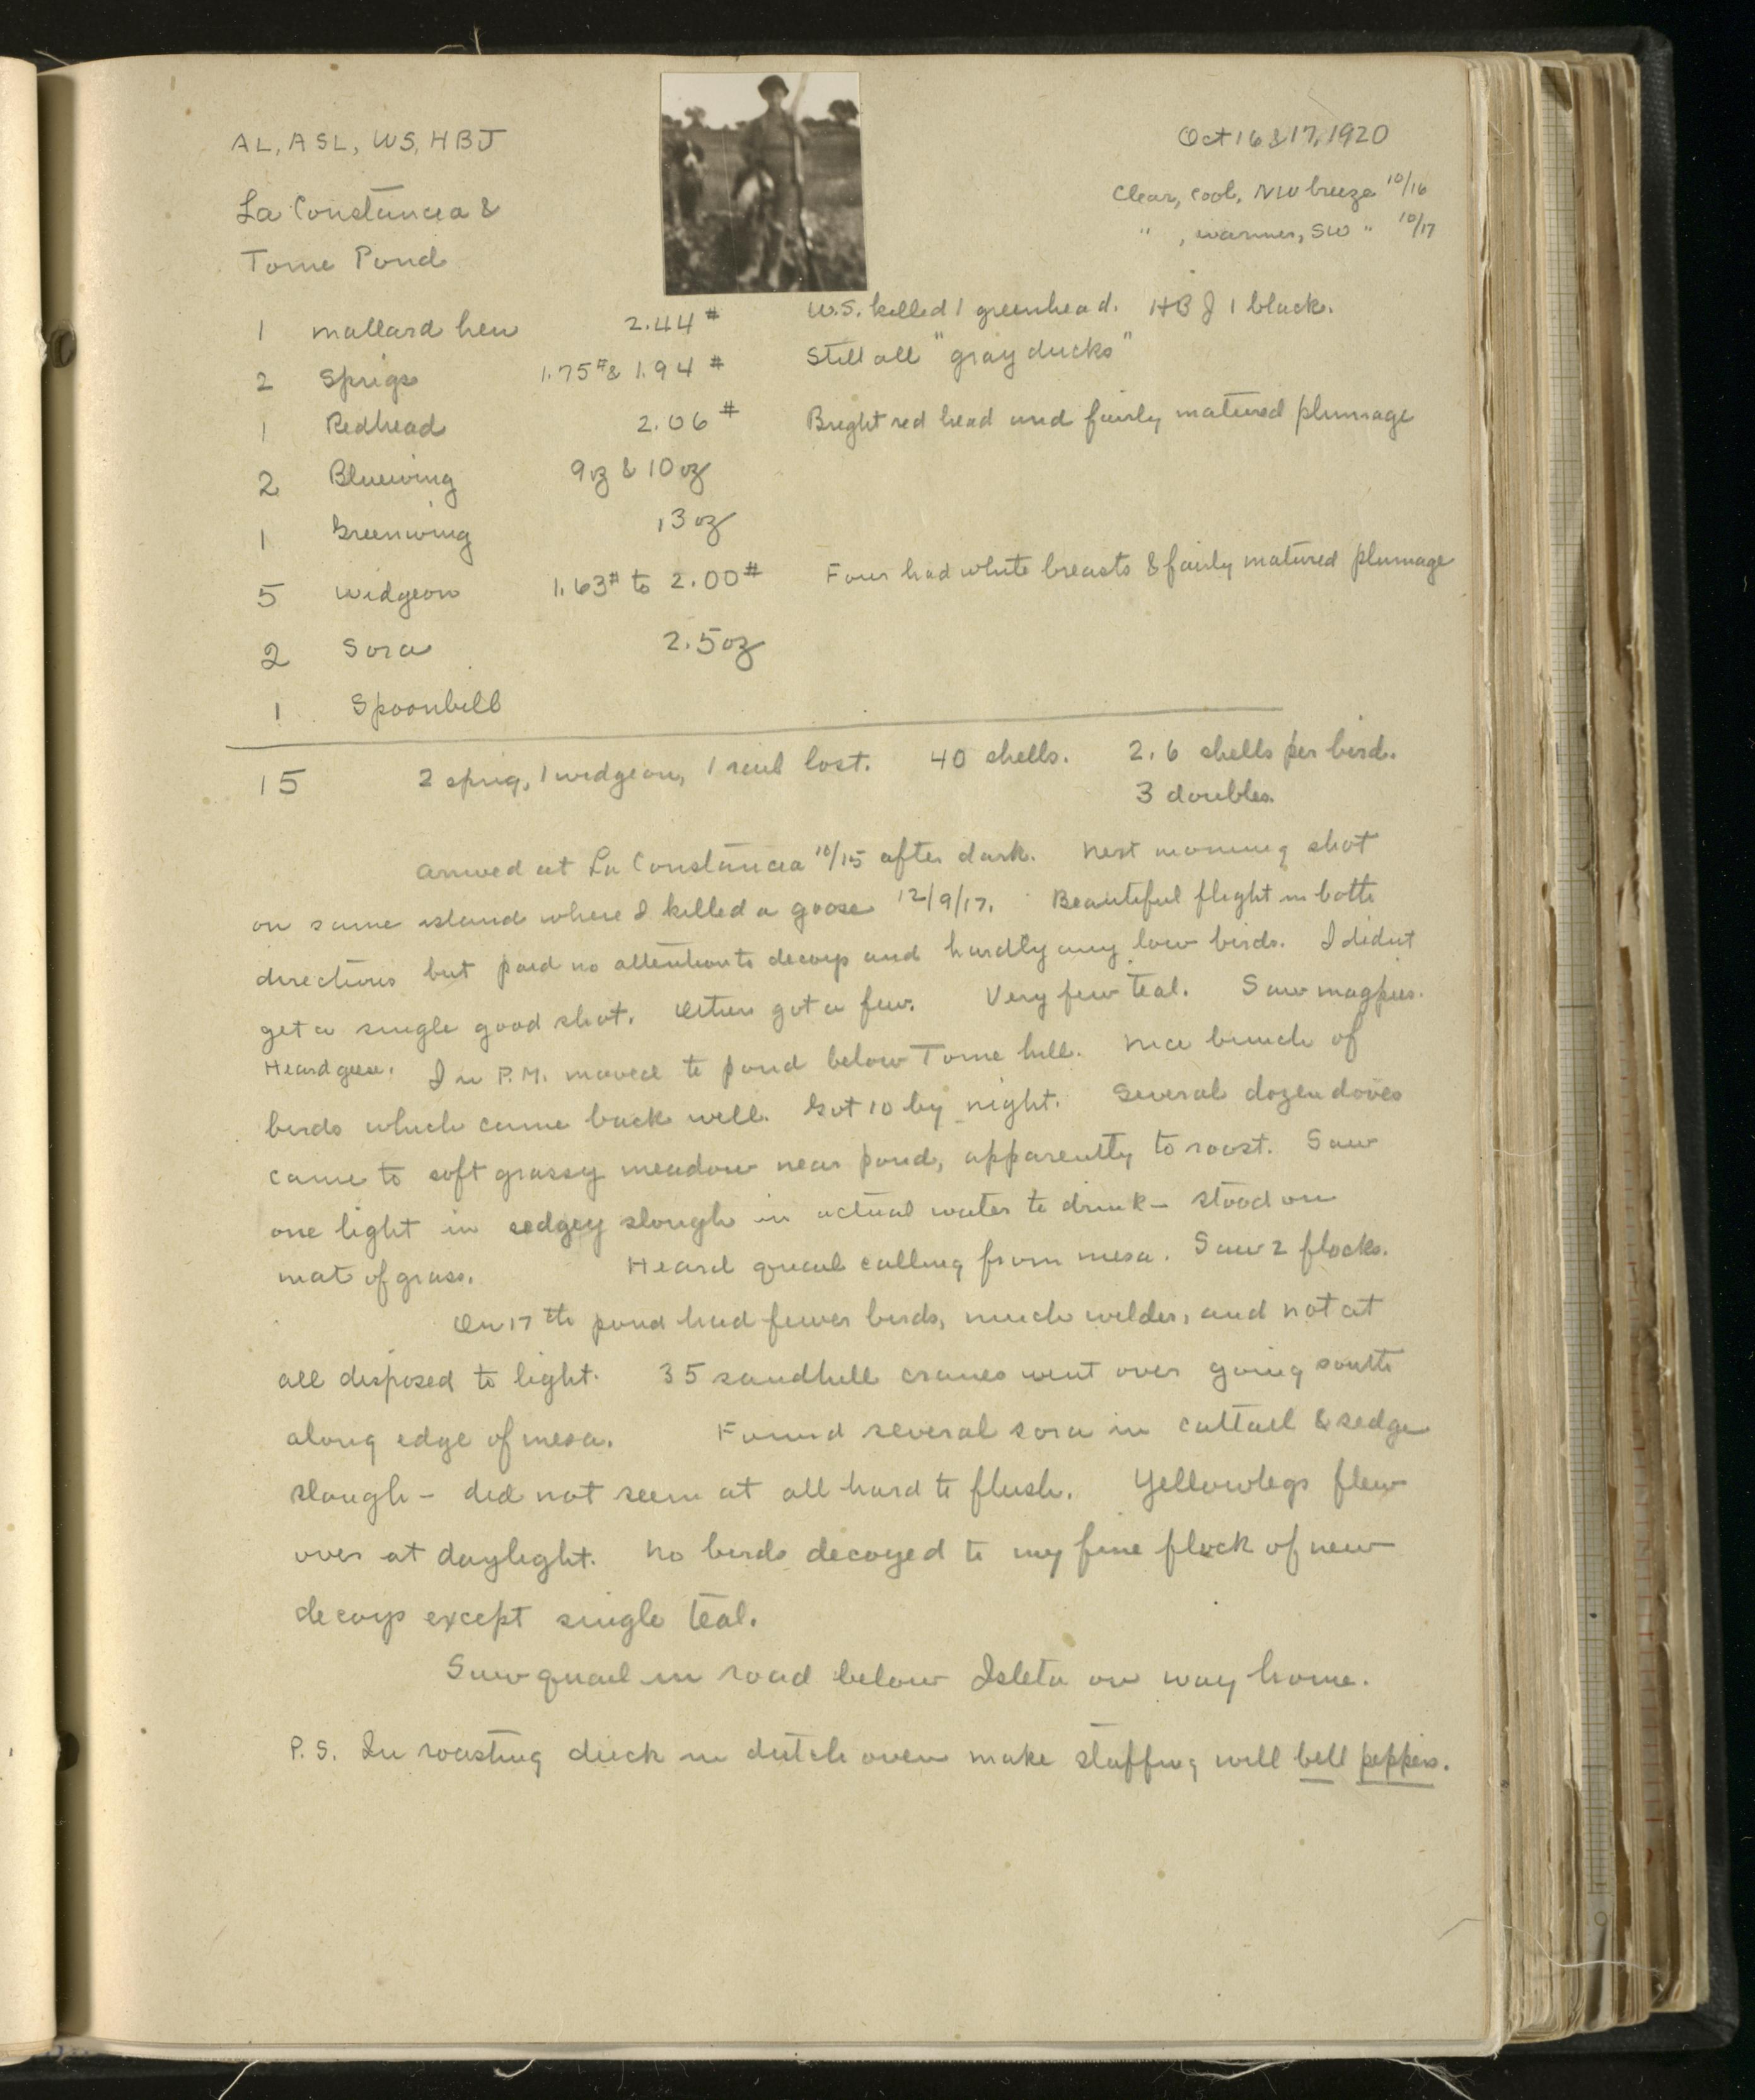 AL, ASL, WS, HBJ
Oct 16 & 17, 1920
La Constancia &
Clear, cool, NW breeze 10/16
Tome Pond
" , warmer, SW " 10/17
1 mallard hen 2.44# W.S. killed 1 greenhead. HBJ 1 black.
2 Sprigs 1.75# & 1.94# Still all "gray ducks"
1 Redhead 2.06# Bright red head and fairly matured plumage
2 Bluewing 9oz & 10oz
1 Greenwing 13oz
5 Widgeon 1.63# to 2.00# Four had white breasts & fairly matured plumage
2 Sora 2.5oz
1 Spoonbill
15 2 sprig, 1 widgeon, 1 rail lost. 40 shells. 2.6 shells per bird.
3 doubles.
Arrived at La Constancia 10/15 after dark. Next morning shot
on same island where I killed a goose 12/9/17. Beautiful flight in both
directions but paid no attention to decoys and hardly any low birds. I didnt
get a single good shot. Others got a few. Very few teal. Saw magpies.
Heard geese. In P.M. moved to pond below Tome hill. Nice bunch of
birds which came back well. Got 10 by night. Several dozen doves
came to soft grassy meadow near pond, apparently to roost. Saw
one light in sedgey slough in actual water to drink – stood on
mat of grass. Heard quail calling from mesa. Saw 2 flocks.
On 17th pond had fewer birds, much wilder, and not at
all disposed to light. 35 sandhill cranes went over going south
along edge of mesa. Found several sora in cattail & sedge
slough – did not seem at all hard to flush. Yellowlegs flew
over at daylight. No birds decoyed to my fine flock of new
decoys except single teal.
Saw quail in road below Isleta on way home.
P.S. In roasting duck in dutch oven make stuffing will bell peppers.